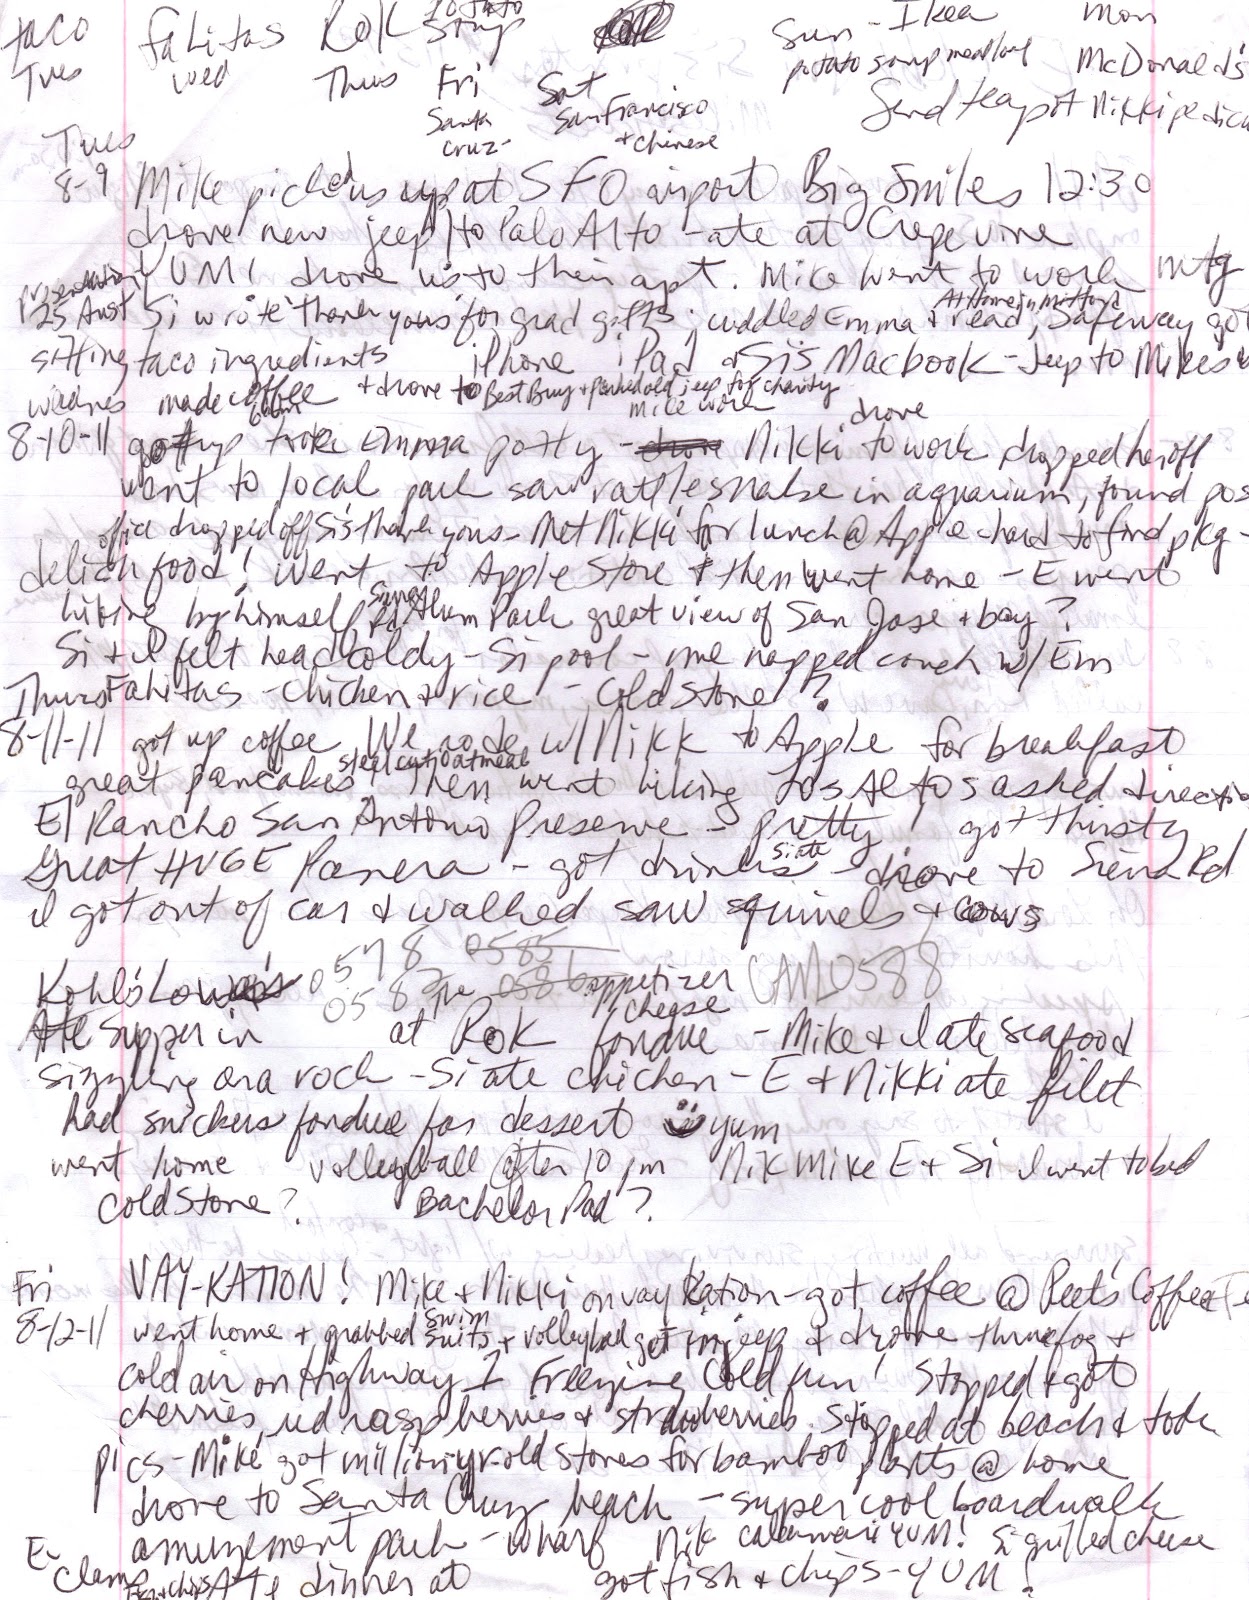 taco fahitas Rok potato soup Sun - Ikea Mon
Tues Wed Thurs Fri Sat potato soup meatloaf McDonald's
Santa Cruz - San Francisco + chinese Send teapot Nikki pedicu
Tues
8-9 Mike picked us up at SFO airport Big Smiles 12:30
drove new jeep to Palo Alto - ate at Crepevine
YUM! drove us to their apt. Mike went to work mtg
presentation
25 Aust Si wrote thank yous for grad gifts; cuddled Emma + read, At Home in Mitford Safeway got
sitting taco ingredients iPhone iPad + Si's Macbook - Jeep to Mike's
wednes made coffee + drove to Best Buy + parked old jeep for charity
6am Mike work drove
8-10-11 got up took Emma potty - Nikki to work dropped her off
went to local park saw rattlesnake in aquarium, found pos
office dropped off Si's thank yous - Met Nikki for lunch @ Apple - hard to find pkg -
delish food! went to Apple Store + then went home - E went
hiking by himself Sierra Rd Alum Park great view of San Jose + bay?
Si + I felt head coldy - Si pool - me napped couch w/ Em
Thurs Fahitas - chicken + rice - Cold Stone?
8-11-11 got up coffee We rode w/ Nikk to Apple for breakfast
great pancakes steel cut oatmeal Then went hiking Los Altos asked directio
El Rancho San Antonio Preserve - pretty! got thirsty
Great HUGE Panera - got drinks Si ate - drove to Sierra Rd
I got out of car + walked saw squirrels + cows
Kohl's Lowe's 0578 0585 appetizer CAM 0588
058 The 0586 cheese
Ate supper in at Rok fondue - Mike + I ate seafood
sizzling on a rock - Si ate chicken - E + Nikki ate filet
had snickers fondue for dessert yum
went home volleyball after 10 pm Nik Mike E + Si I went to bed
Cold Stone? Bachelor Pad?
Fri VAY-KATION! Mike + Nikki on vay Kation - got coffee @ Peet's Coffee + Te
8-12-11 went home + grabbed swim suits + volleyball got in jeep + drove thru fog +
cold air on Highway 1 Freezing Cold fun! Stopped + got
cherries, red raspberries + strawberries. Stopped at beach + took
pics - Mike got million yr old stones for bamboo plants @ home
drove to Santa Cruz beach - super cool boardwalk
amusement park - wharf Nik calamari YUM! Si grilled cheese
E - clam Fish + chips Ate dinner at got fish + chips - YUM!